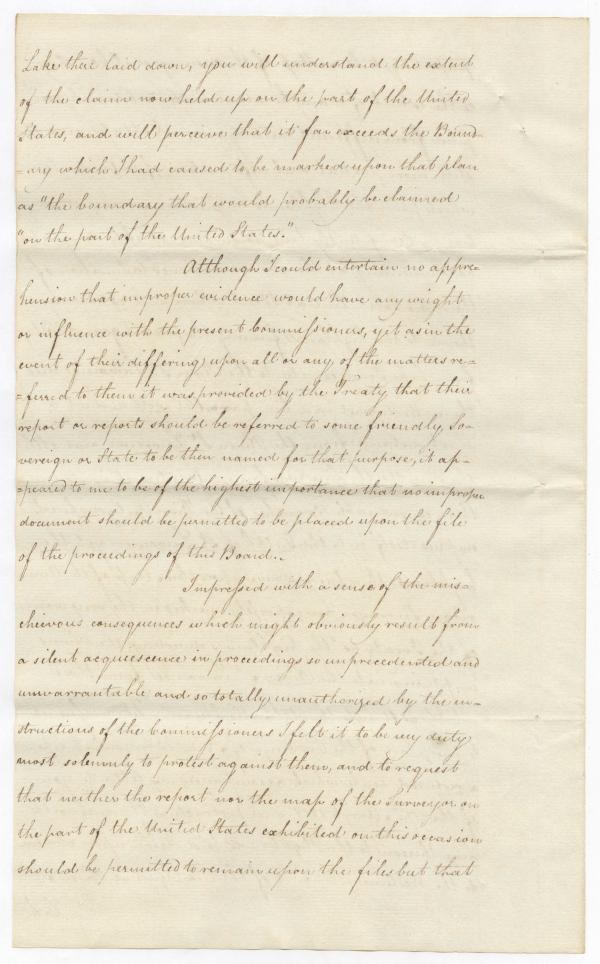 Lake there laid down, you will understand the extent
of the claim now held up on the part of the United
States, and will perceive that it far exceeds the Bound-
=ary which I had caused to be marked upon that plan
as "the boundary that would probably be claimed
"on the part of the United States."
Although I could entertain no appre-
hension that improper evidence would have any weight
or influence with the present Commissioners, yet as in the
event of their differing upon all or any of the matters re-
=ferred to them it was provided by the Treaty that their
report or reports should be referred to some friendly So-
vereign or State to be then named for that purpose, it ap-
=peared to me to be of the highest importance that no improper
document should be permitted to be placed upon the file
of the proceedings of this Board..
Impressed with a sense of the mis-
chievous consequences which might obviously result from
a silent acquiescence in proceedings so unprecedented and
unwarrantable and so totally unauthorized by the in-
structions of the Commissioners I felt it to be my duty
most solemnly to protest against them, and to request
that neither the report nor the map of the Surveyor on
the part of the United States exhibited on this occasion
should be permitted to remain upon the files but that